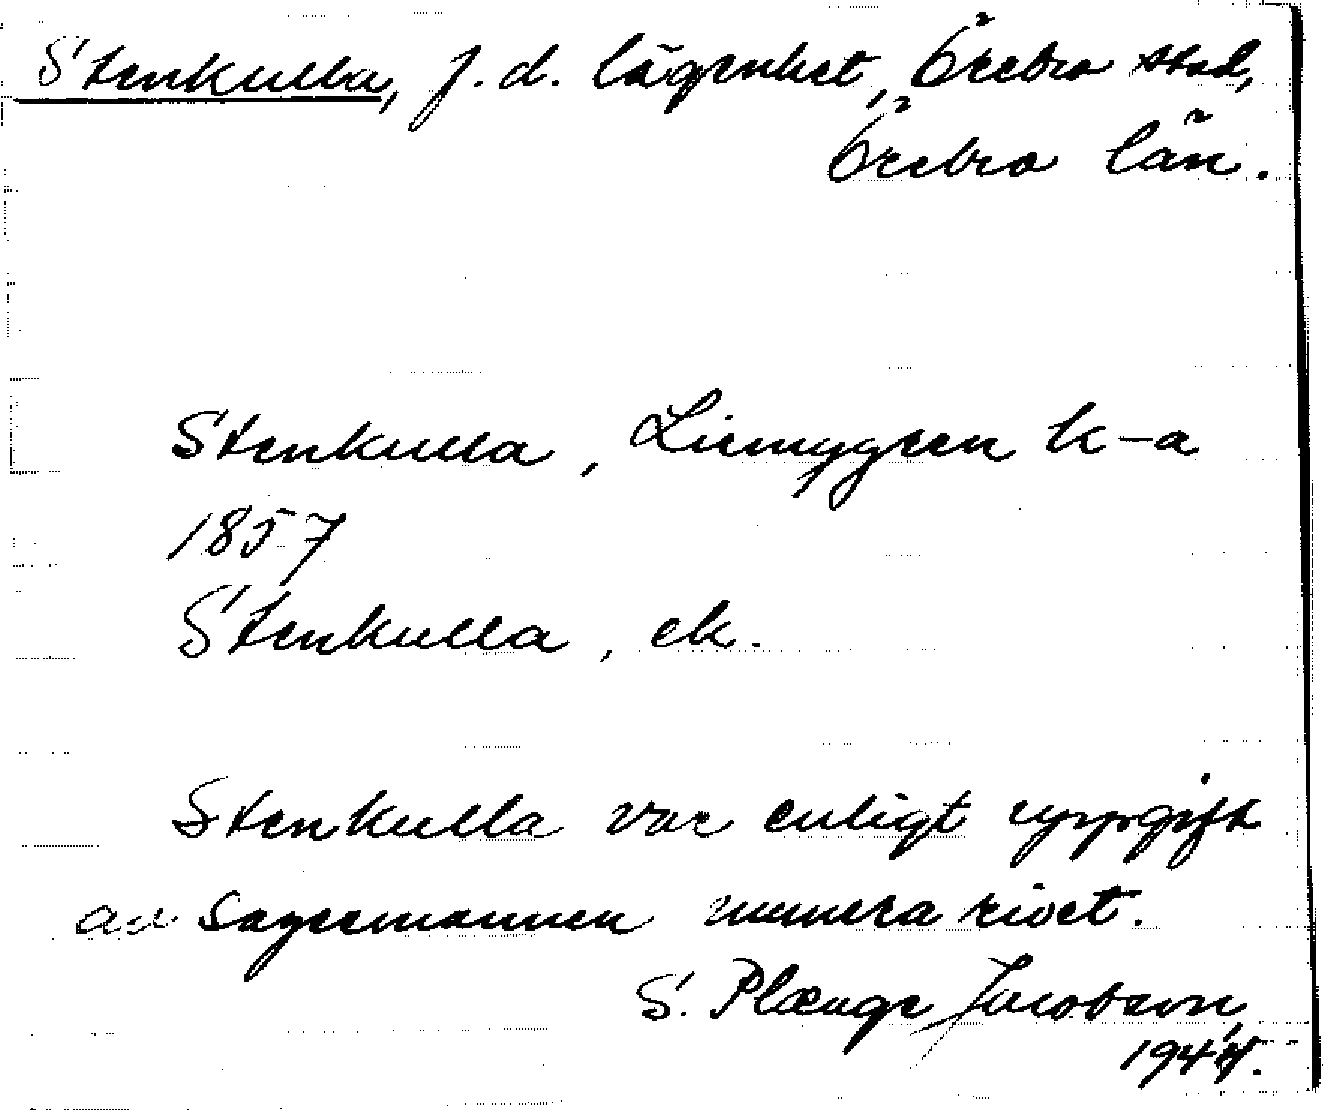 Stenkulla, f.d. lägenhet, Örebro stad,
Örebro län.
Stenkulla, Ljunggren k-a
1857
Stenkulla, ek.
Stenkulla var enligt uppgift
av sagesmannen numera rivet.
S. Plænge Jacobson,
1944.